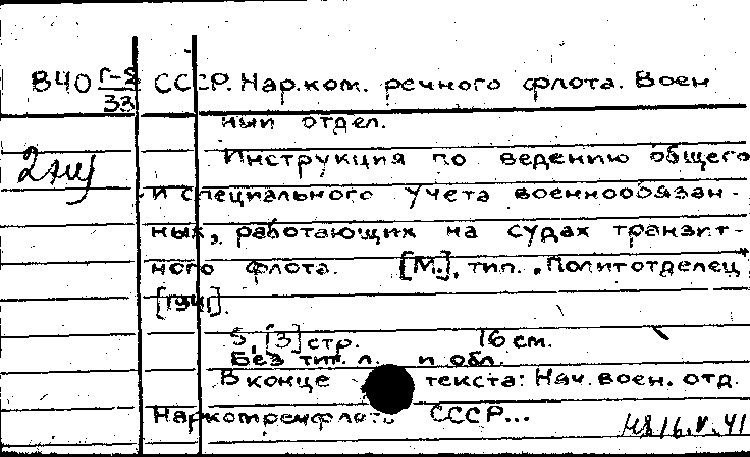 В40 Г-2/33 СССР. Нар.ком. речного флота. Воен
ный отдел.
2 экз
Инструкция по ведению общего
и специального учета военнообязан-
ных, работающих на судах транзит-
ного флота. [М.], тип. "Политотделец"
[1941].
5, [3] стр. 16 см.
Без тит. л. и обл.
В конце текста: Нач. воен. отд.
Наркомречфлота СССР...
16.V.41